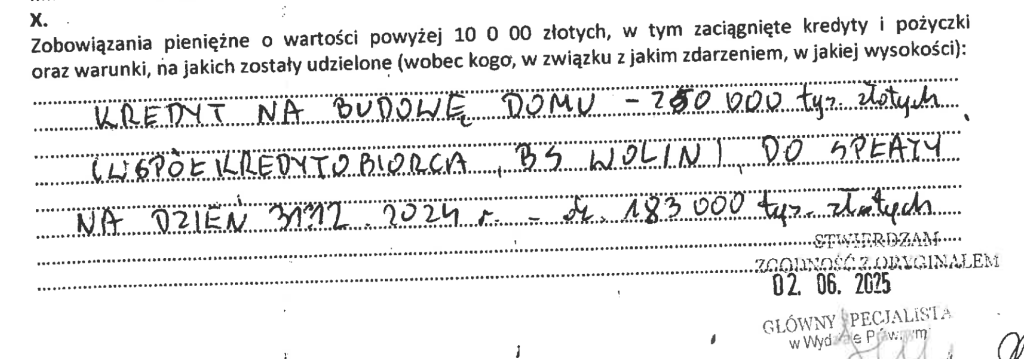 X.
Zobowiązania pieniężne o wartości powyżej 10 0 00 złotych, w tym zaciągnięte kredyty i pożyczki
oraz warunki, na jakich zostały udzielone (wobec kogo, w związku z jakim zdarzeniem, w jakiej wysokości):
KREDYT NA BUDOWĘ DOMU - 250 000 tys. złotych
(WSPÓŁKREDYTOBIORCA, BS WOLIN) DO SPŁATY
NA DZIEŃ 31.12.2024 r. - ok. 183 000 tys. złotych
STWIERDZAM
ZGODNOŚĆ Z ORYGINAŁEM
02. 06. 2025
GŁÓWNY SPECJALISTA
w